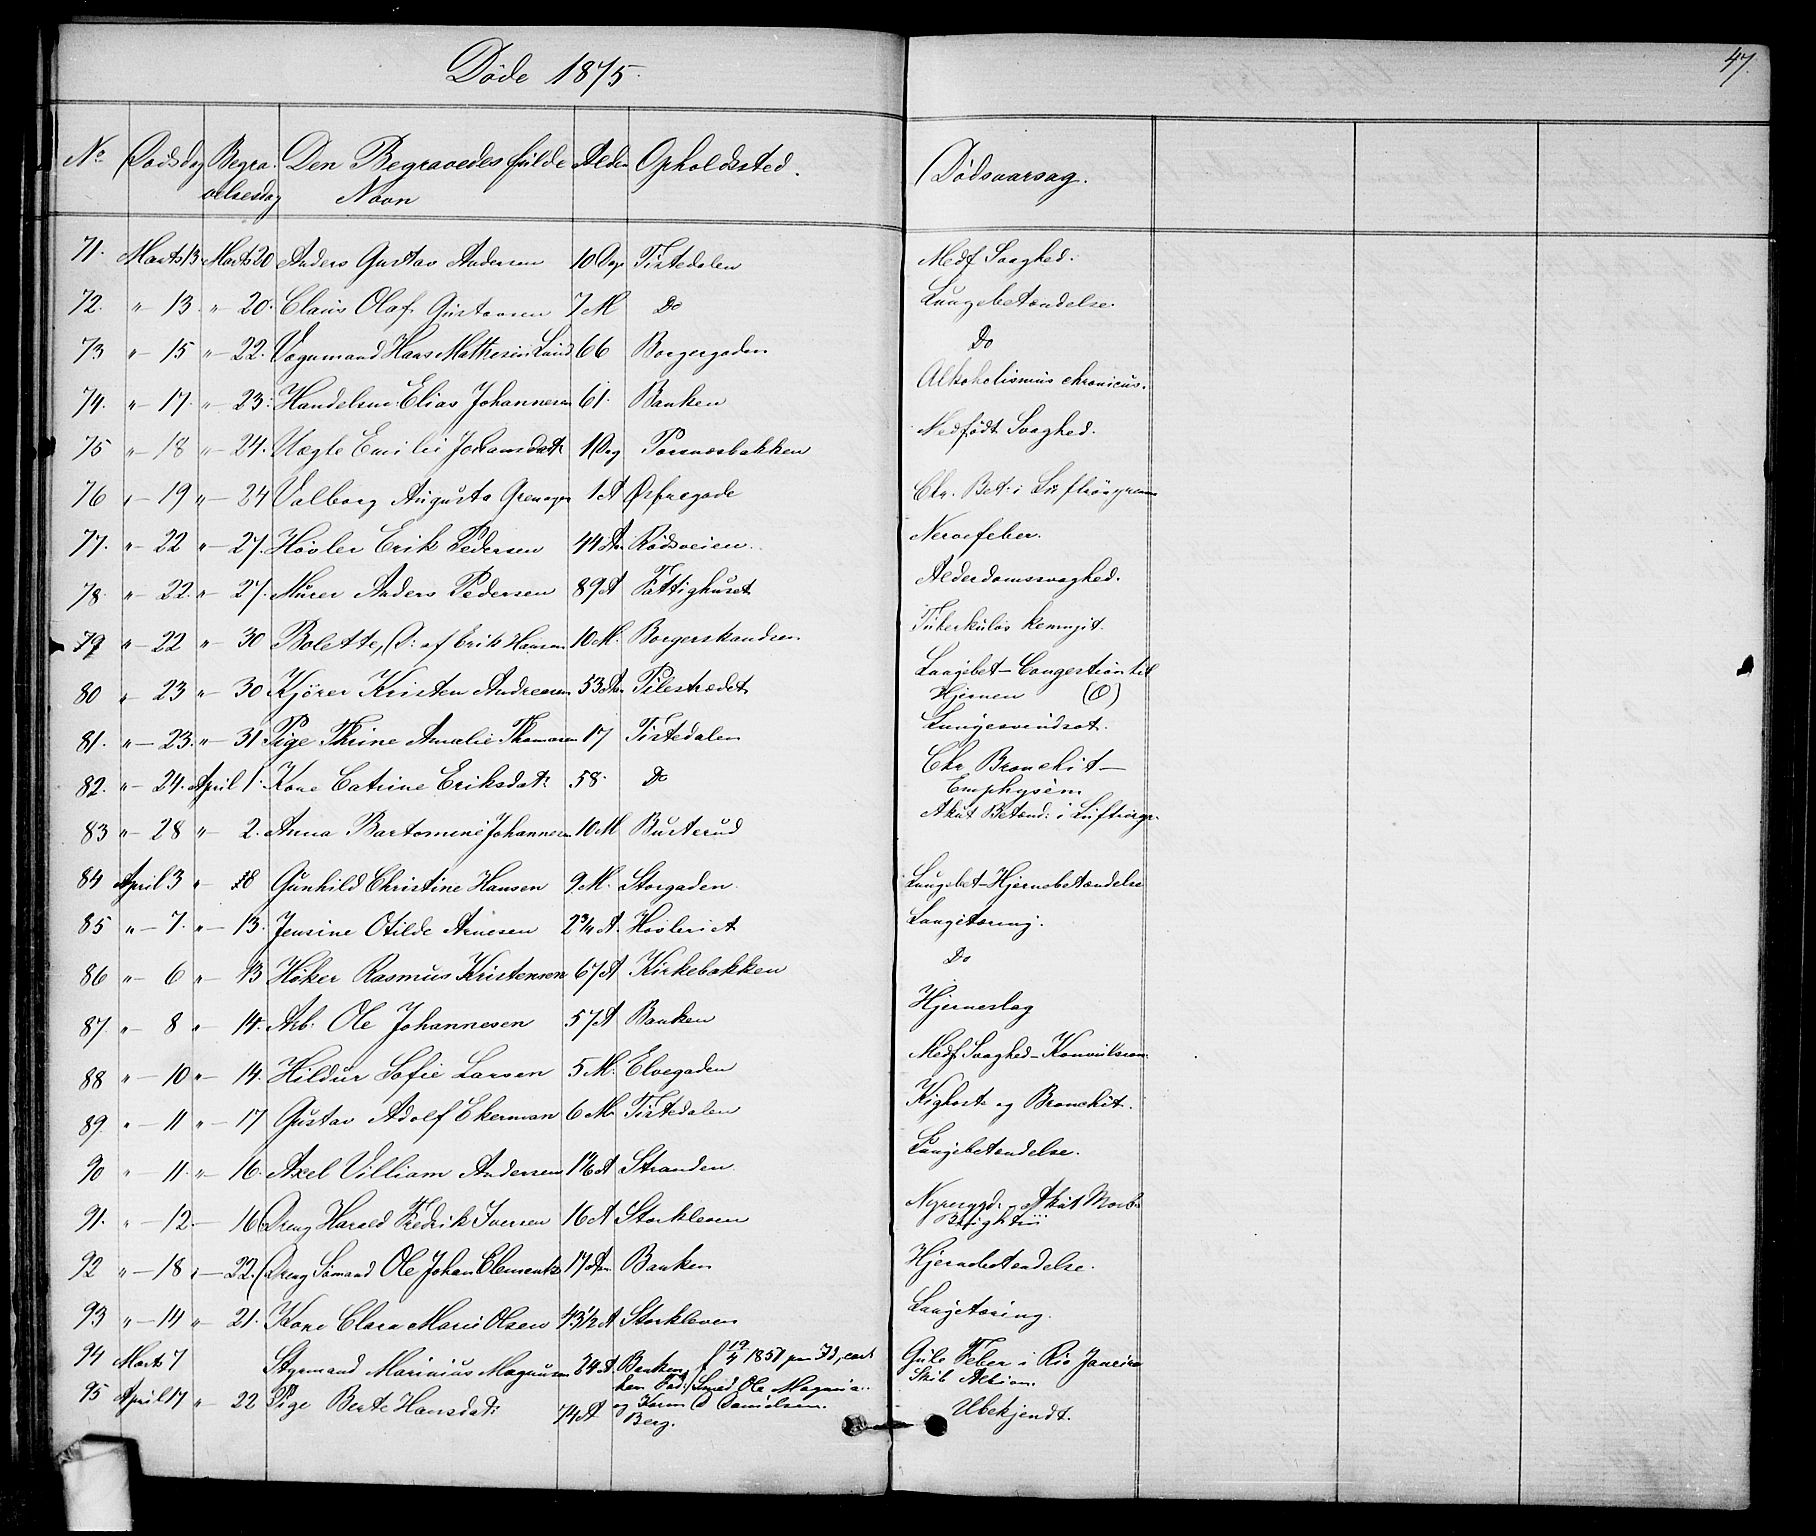 Døde 1875.
47.
No Dødsdag Begravelsesdag Den Begravedes fulde Navn Alder Opholdssted. Dødsaarsag.
71. Marts 13 Marts 20 Anders Gustav Andersen 10 Dag Tistedalen Medf Svaghed.
72. " – 13. " – 20. Claus Olaf Gustavsen 7 M Do Lungebetændelse.
73 " – 15 " – 22. Vognmand Hans Mathesen Lund 66 Borgergaden Do
74. " – 17. " – 23. Handelsm. Elias Johannesen 61. Banken Alkoholismus chronicus.
75 " – 18 " – 24. Uægte Emilie Johansdatr 1 Dag Torsnæsbakken Medfødt Svaghed.
76 " – 19 " – 24 Valborg Augusta 1 A Øsfregade Chr. Bet. i Luftrørgrenene
77. " – 22 " – 27. Høvler Erik Pedersen 44 Aar Rødsveien. Nervefeber.
78. " – 22. " – 27. Murer Anders Pedersen 89 A Fattighuset Alderdomssvaghed.
79 " – 22 " – 30 Bolette, D: af Erik Hansen 10 M. Borgerskandsen Tuberkuløs
80 " – 23 " – 30 Kjører Kristen Andreasen 53 Aar Pilestrædet Lungebet – Congestion til
Hjernen (O)
81. " – 23. " – 31. Pige Thrine Amalie Thomasen 17 Tistedalen Lungesvindsot.
82. " – 24. April 1. Kone Catrine Eriksdatr 58. Do Chr Bronchit –
Emphysem
83 " – 28 " – 2. Anna Bartomine Johannesen 10 M Busterud Akut Betænd: i Luftrørgr.
84 April 3 " – 8 Gunhild Christine Hansen 9 M. Storgaden. Lungebet – Hjernebetændelse
85 " – 7. " – 13. Jensine Otilde Arnesen 2 3/4 A. Høvleriet Lungetæring.
86 " – 6 " – 13 Høker Rasmus Kristensen 67 A Kirkebakken Do
87. " – 8 " – 14. Arb. Ole Johannesen 57 A Banken Hjerneslag
88 " – 10 " – 14. Hildur Sofie Larsen 5 M. Elvegaden Medf Svaghed – Konvulsion.
89. " – 11 " – 17 Gustav Adolf Ekerman 6 M Tistedalen Kighoste og Bronchit.
90 " – 11. " – 16. Axel Villiam Andersen A Stranden Lungebetændelse.
91. " – 12 – 16 Dreng Harald Fredrik Iversen 16 A Storkleven Nyresygd: Akut Morb:
Brightii
92 " – 18 " – 22. Dreng Sømand Ole Johan Clements 17 Aar Banken Hjernebetændelse.
93 " – 14 " – 21. Kone Clara Marie Olsen 43 1/2 A Storkleven Lungetæring.
94 Marts 7 Styrmand Marinius Magnusen 24 A Banken, f 19/4 185 Gule Feber i Rio Janeiro
Fad: Smed Ole Skib
95 April 17 " 22 Pige Berte Hansdatr 74 A og Karen Danielsen. Ubekjendt.
Berg.